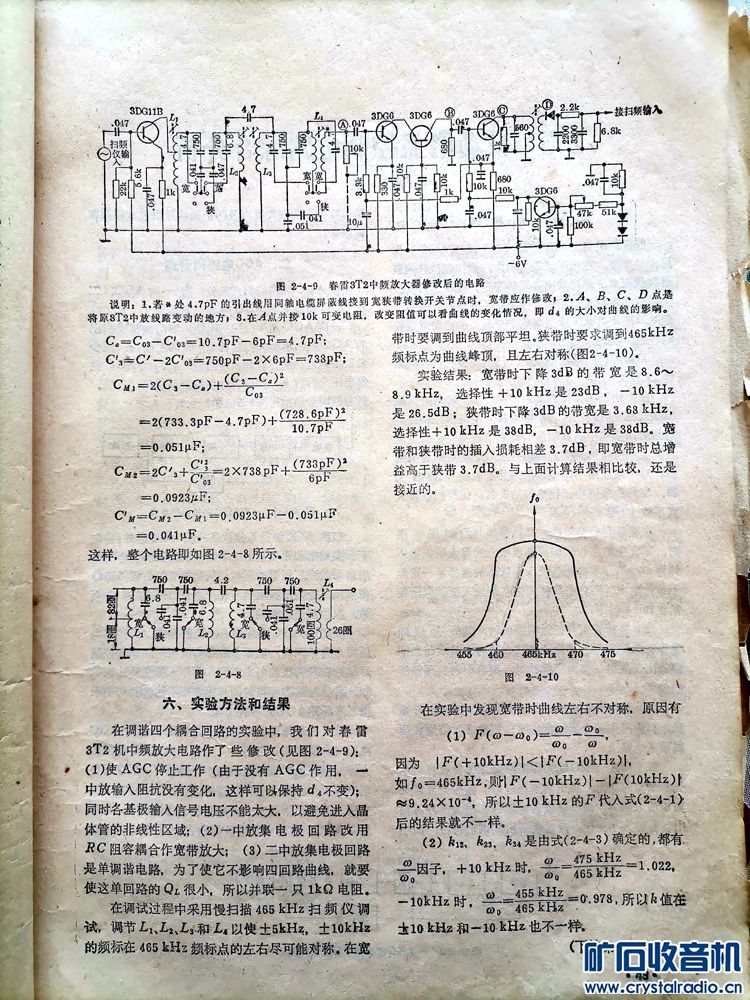 3DG11B
4.7
3DG6
3DG6
3DG6
2.2k
接扫频输入
6.8k
扫频
仪输
入
3DG6
47k
51k
100k
-6V
图 2-4-9 春雷3T2中频放大器修改后的电路
说明：1.若*处4.7pF的引出线用同轴电缆屏蔽线接到宽狭带转换开关节点时，宽带应作修改；2.A、B、C、D点是
将原3T2中放线路变动的地方；3.在A点并接10k可变电阻，改变阻值可以看曲线的变化情况，即d₄的大小对曲线的影响。
Cₐ=C₀₃-C'₀₃=10.7pF-6pF=4.7pF;
C'₃=C'-2C'₀₃=750pF-2×6pF=738pF;
C_M1=2(C₃-Cₐ)+(C₃-Cₐ)²/C₀₃
=2(733.3pF-4.7pF)+(728.6pF)²/10.7pF
=0.051μF;
C_M2=2C'₃+C'₃²/C'₀₃=2×738pF+(733pF)²/6pF
=0.0923μF;
C'_M=C_M2-C_M1=0.0923μF-0.051μF
=0.041μF。
这样，整个电路即如图2-4-8所示。
750 750 4.2 750 750
18圈+82圈
100圈
26圈
图 2-4-8
六、实验方法和结果
在调谐四个耦合回路的实验中，我们对春雷
3T2机中频放大电路作了些修改(见图2-4-9)：
(1)使AGC停止工作(由于没有AGC作用，一
中放输入阻抗没有变化，这样可以保持d₄不变)；
同时各基极输入信号电压不能太大，以避免进入晶
体管的非线性区域；(2)一中放集电极回路改用
RC阻容耦合作宽带放大；(3)二中放集电极回路
是单调谐电路，为了使它不影响四回路曲线，就要
使这单回路的Q_L很小，所以并联一只1kΩ电阻。
在调试过程中采用慢扫描465kHz扫频仪调
试，调节L₁、L₂、L₃和L₄以使±5kHz，±10kHz
的频标在465kHz频标点的左右尽可能对称。在宽
带时要调到曲线顶部平坦。狭带时要求调到465kHz
频标点为曲线峰顶，且左右对称(图2-4-10)。
实验结果：宽带时下降3dB的带宽是8.6～
8.9kHz，选择性+10kHz是23dB，-10kHz
是26.5dB；狭带时下降3dB的带宽是3.68kHz，
选择性+10kHz是38dB，-10kHz是38dB。宽
带和狭带时的插入损耗相差3.7dB，即宽带时总增
益高于狭带3.7dB。与上面计算结果相比较，还是
接近的。
f₀
455 460 465kHz 470 475
图 2-4-10
在实验中发现宽带时曲线左右不对称，原因有
(1) F(ω-ω₀)=ω/ω₀-ω₀/ω，
因为 |F(+10kHz)|<|F(-10kHz)|，
如f₀=465kHz,则|F(-10kHz)|-|F(10kHz)|
≈9.24×10⁻⁴，所以±10kHz的F代入式(2-4-1)
后的结果就不一样。
(2) k₁₂，k₂₃，k₃₄是由式(2-4-3)确定的,都有
ω/ω₀因子，+10kHz时，ω/ω₀=475kHz/465kHz=1.022，
-10kHz时，ω/ω₀=455kHz/465kHz=0.978，所以k值在
±10kHz和-10kHz也不一样。
• 49 •
矿石收音机
www.crystalradio.cn